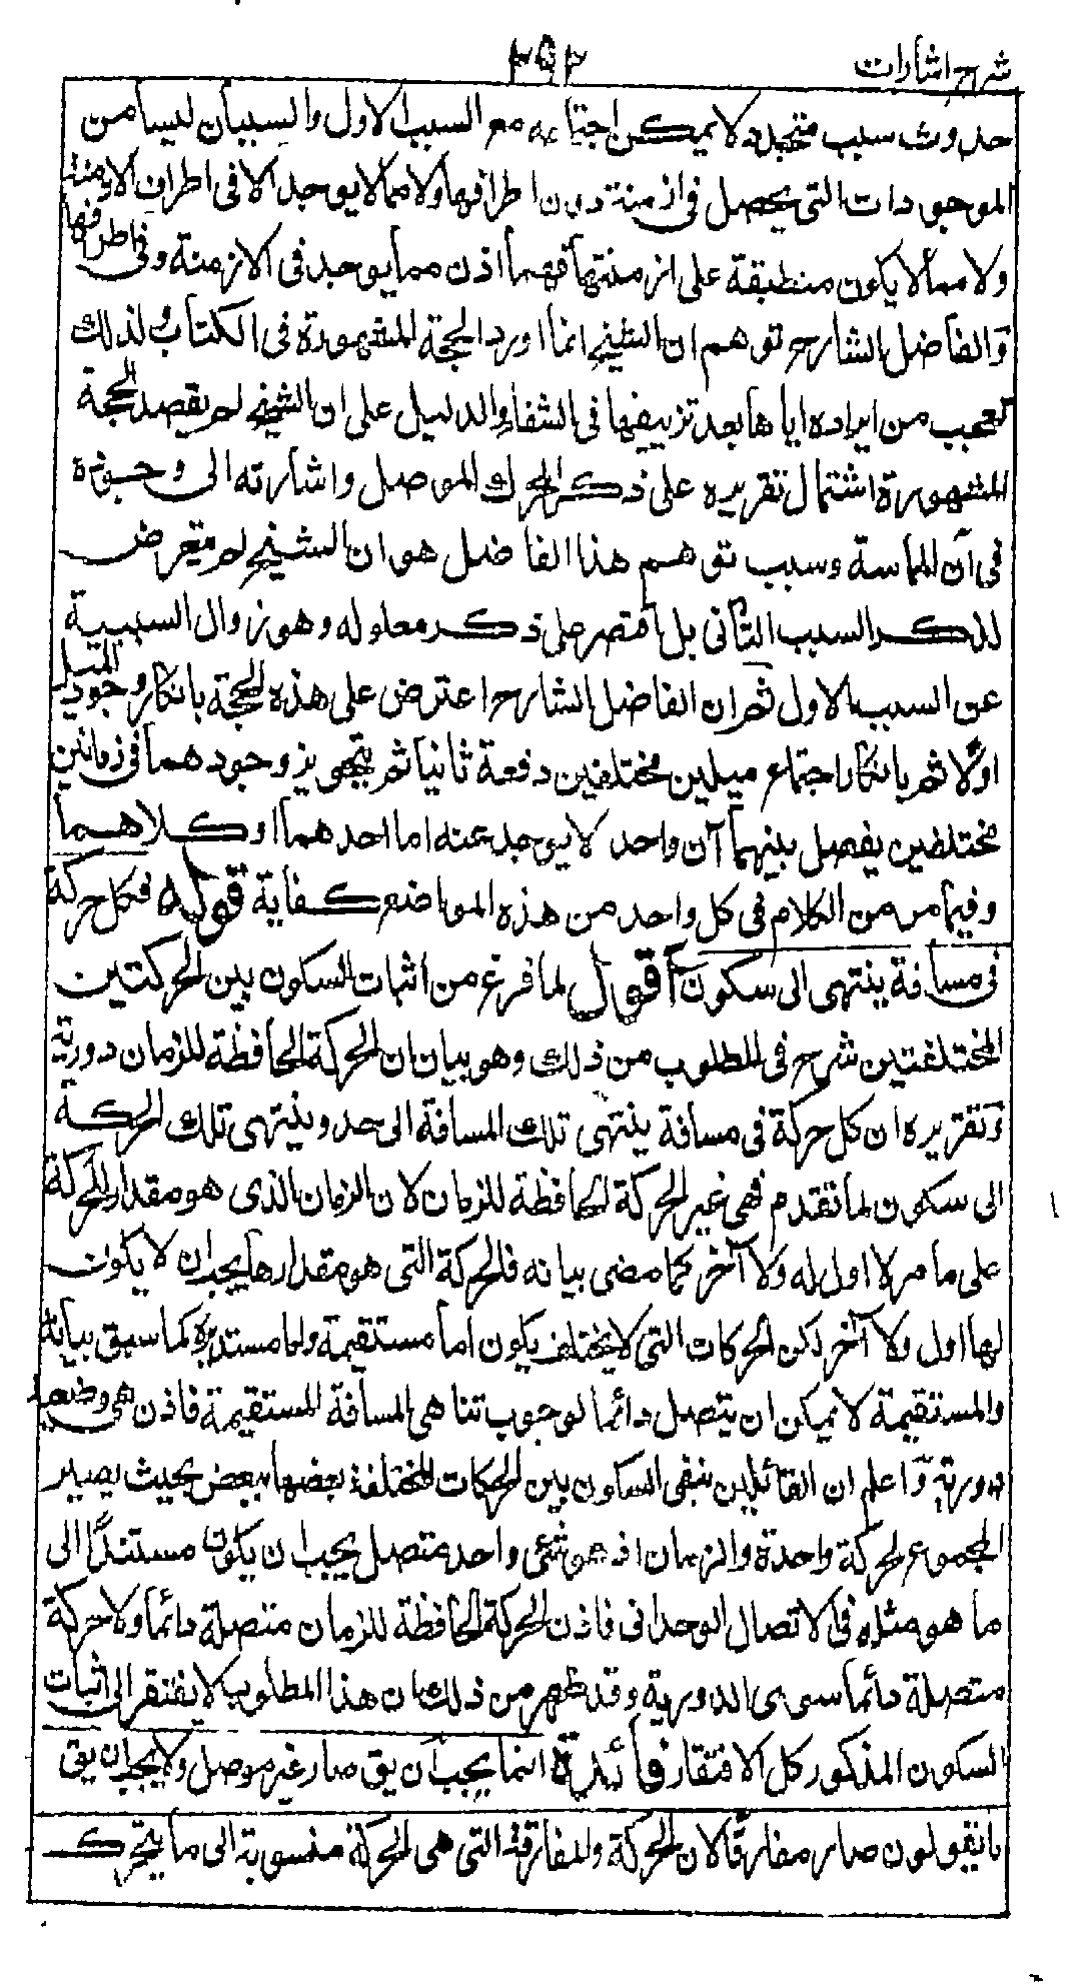 شرح اشارات
٣٩٢
حدوث سبب متجدد لا يمكن اجتماعه مع السبب الاول والسببان ليسا من
الموجودات التى يحصل فى ازمنة دون اطرافها ولا مما لا يوجد الا فى اطراف الازمنة
ولا مما لا يكون منطبقة على ازمنتها فهما اذن مما يوجد فى الازمنة وفى اطرافها
والفاضل الشارح توهم ان الشيخ انما اورد الحجة المشهورة فى الكتاب ولذلك
تعجب من ايراده اياها بعد تزييفها فى الشفاء والدليل على ان الشيخ لم يقصد الحجة
المشهورة اشتمال تقريره على ذكر المحرك الموصل واشارته الى وجوده
فى آن المماسة وسبب توهم هذا الفاضل هو ان الشيخ لم يتعرض
لذكر السبب الثانى بل اقتصر على ذكر معلوله وهو زوال السببية
عن السبب الاول ثم ان الفاضل الشارح اعترض على هذه الحجة بانكار وجود الميل
اولا ثم بانكار اجتماع ميلين مختلفين دفعة ثانيا ثم بتجويز وجودهما فى زمانين
مختلفين يفصل بينهما آن واحد لا يوجد عنه اما احدهما او كلاهما
وفيما مر من الكلام فى كل واحد من هذه المواضع كفاية قوله فكل حركة
فى مسافة ينتهى الى سكون اقول لما فرغ من اثبات السكون بين الحركتين
المختلفتين شرح فى المطلوب من ذلك وهو بيان ان الحركة الحافظة للزمان دورية
وتقريره ان كل حركة فى مسافة ينتهى تلك المسافة الى حد وينتهى تلك الحركة
الى سكون لما تقدم فهى غير الحركة الحافظة للزمان لان الزمان الذى هو مقدار الحركة
على ما مر لا اول له ولا آخر كما مضى بيانه فالحركة التى هو مقدارها يجب ان لا يكون
لها اول ولا آخر لكن الحركات التى لا يختلف يكون اما مستقيمة واما مستديرة كما سبق بيانه
والمستقيمة لا يمكن ان يتصل دائما لوجوب تناهى المسافة المستقيمة فاذن هى وضعية
دورية واعلم ان القائلين بنفى السكون بين الحركات المختلفة بعضها ببعض بحيث يصير
المجموع حركة واحدة والزمان اذ هو شئ واحد متصل يجب ان يكون مستندا الى
ما هو مثله فى الاتصال الوحدانى فاذن الحركة الحافظة للزمان متصلة دائما ولا حركة
متصلة دائما سوى الدورية وقد ظهر من ذلك ان هذا المطلوب لا يفتقر الى اثبات
السكون المذكور كل الافتقار فائدة انما يجب ان يق صار غير موصل ولا يجب ان يق
ما يقولون صار مفارقا لان الحركة والمفارقة التى هى الحركة منسوبة الى ما يتحرك